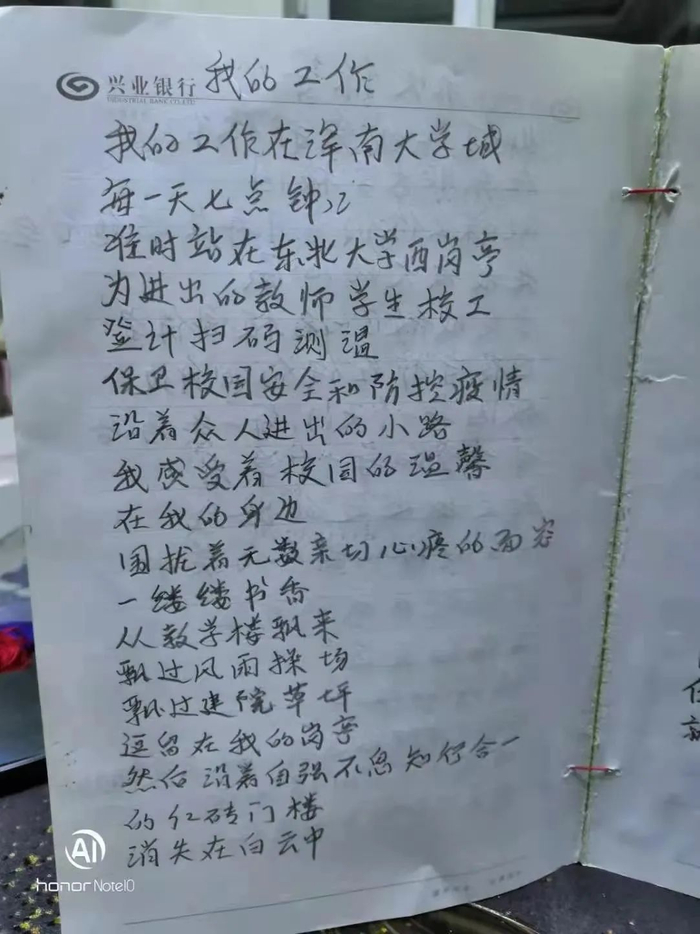 兴业银行 我的工作
INDUSTRIAL BANK CO.,LTD.
我的工作在浑南大学城
每一天七点钟
准时站在东北大学西岗亭
为进出的教师学生校工
登计扫码测温
保卫校园安全和防控疫情
沿着众人进出的小路
我感受着校园的温馨
在我的身边
围拢着无数亲切心疼的面容
一缕缕书香
从教学楼飘来
飘过风雨操场
飘过建院草坪
逗留在我的岗亭
然后沿着自强不息知行合一
的红砖门楼
消失在白云中
AI
honor Note10